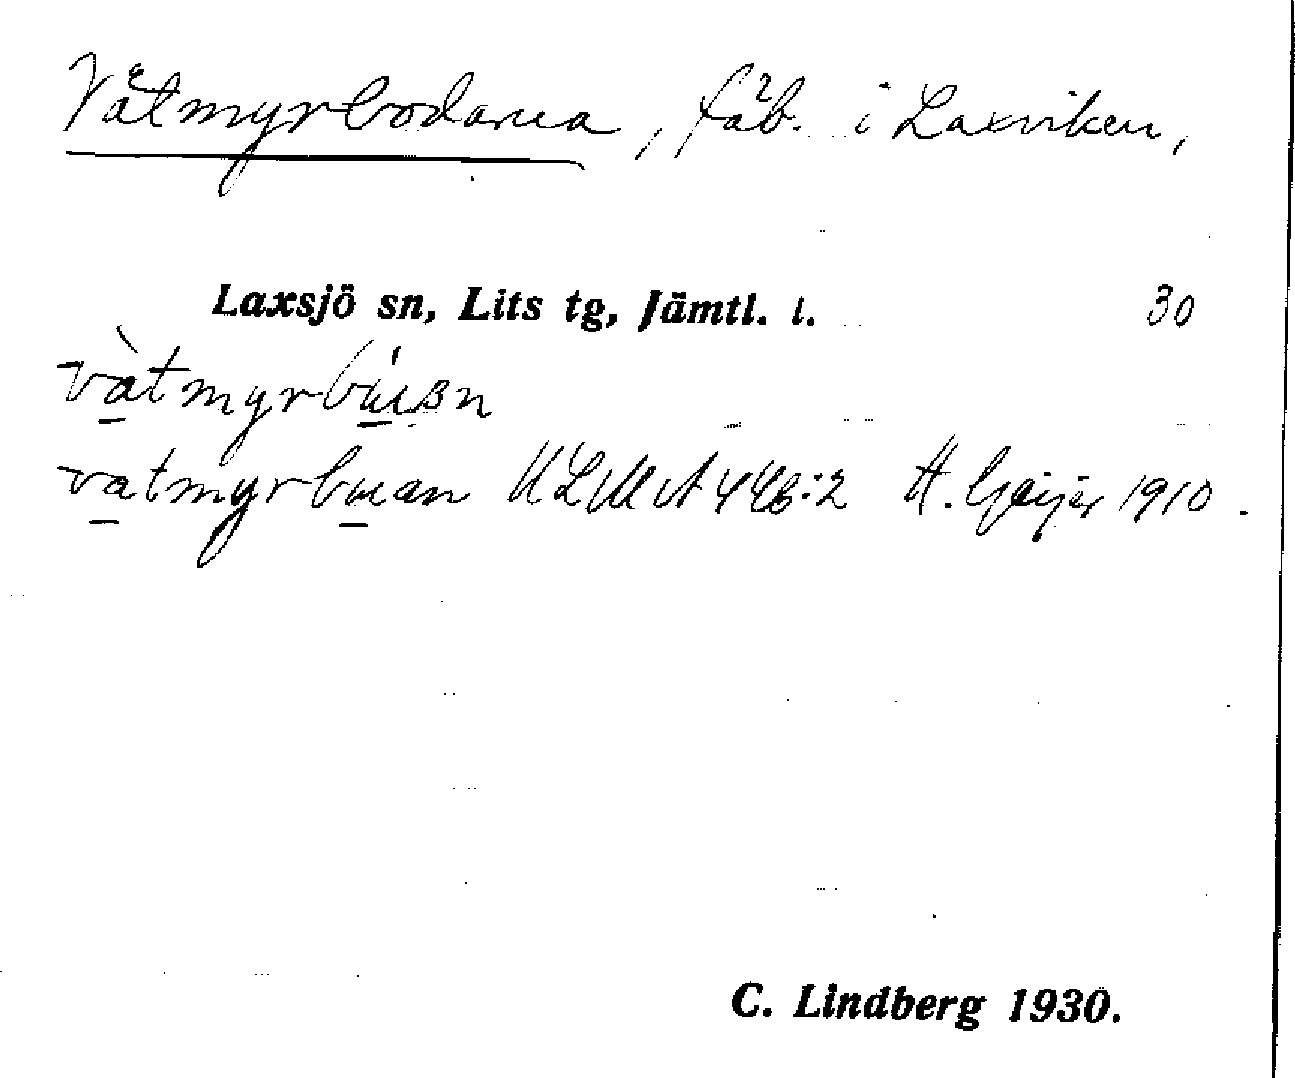 Våtmyrbodarna, fäb. i Laxviken,
Laxsjö sn, Lits tg, Jämtl. l. 30
vàtmyrbúan
vatmyrbuan ULMA 446:2 H. Geijer 1910.
C. Lindberg 1930.